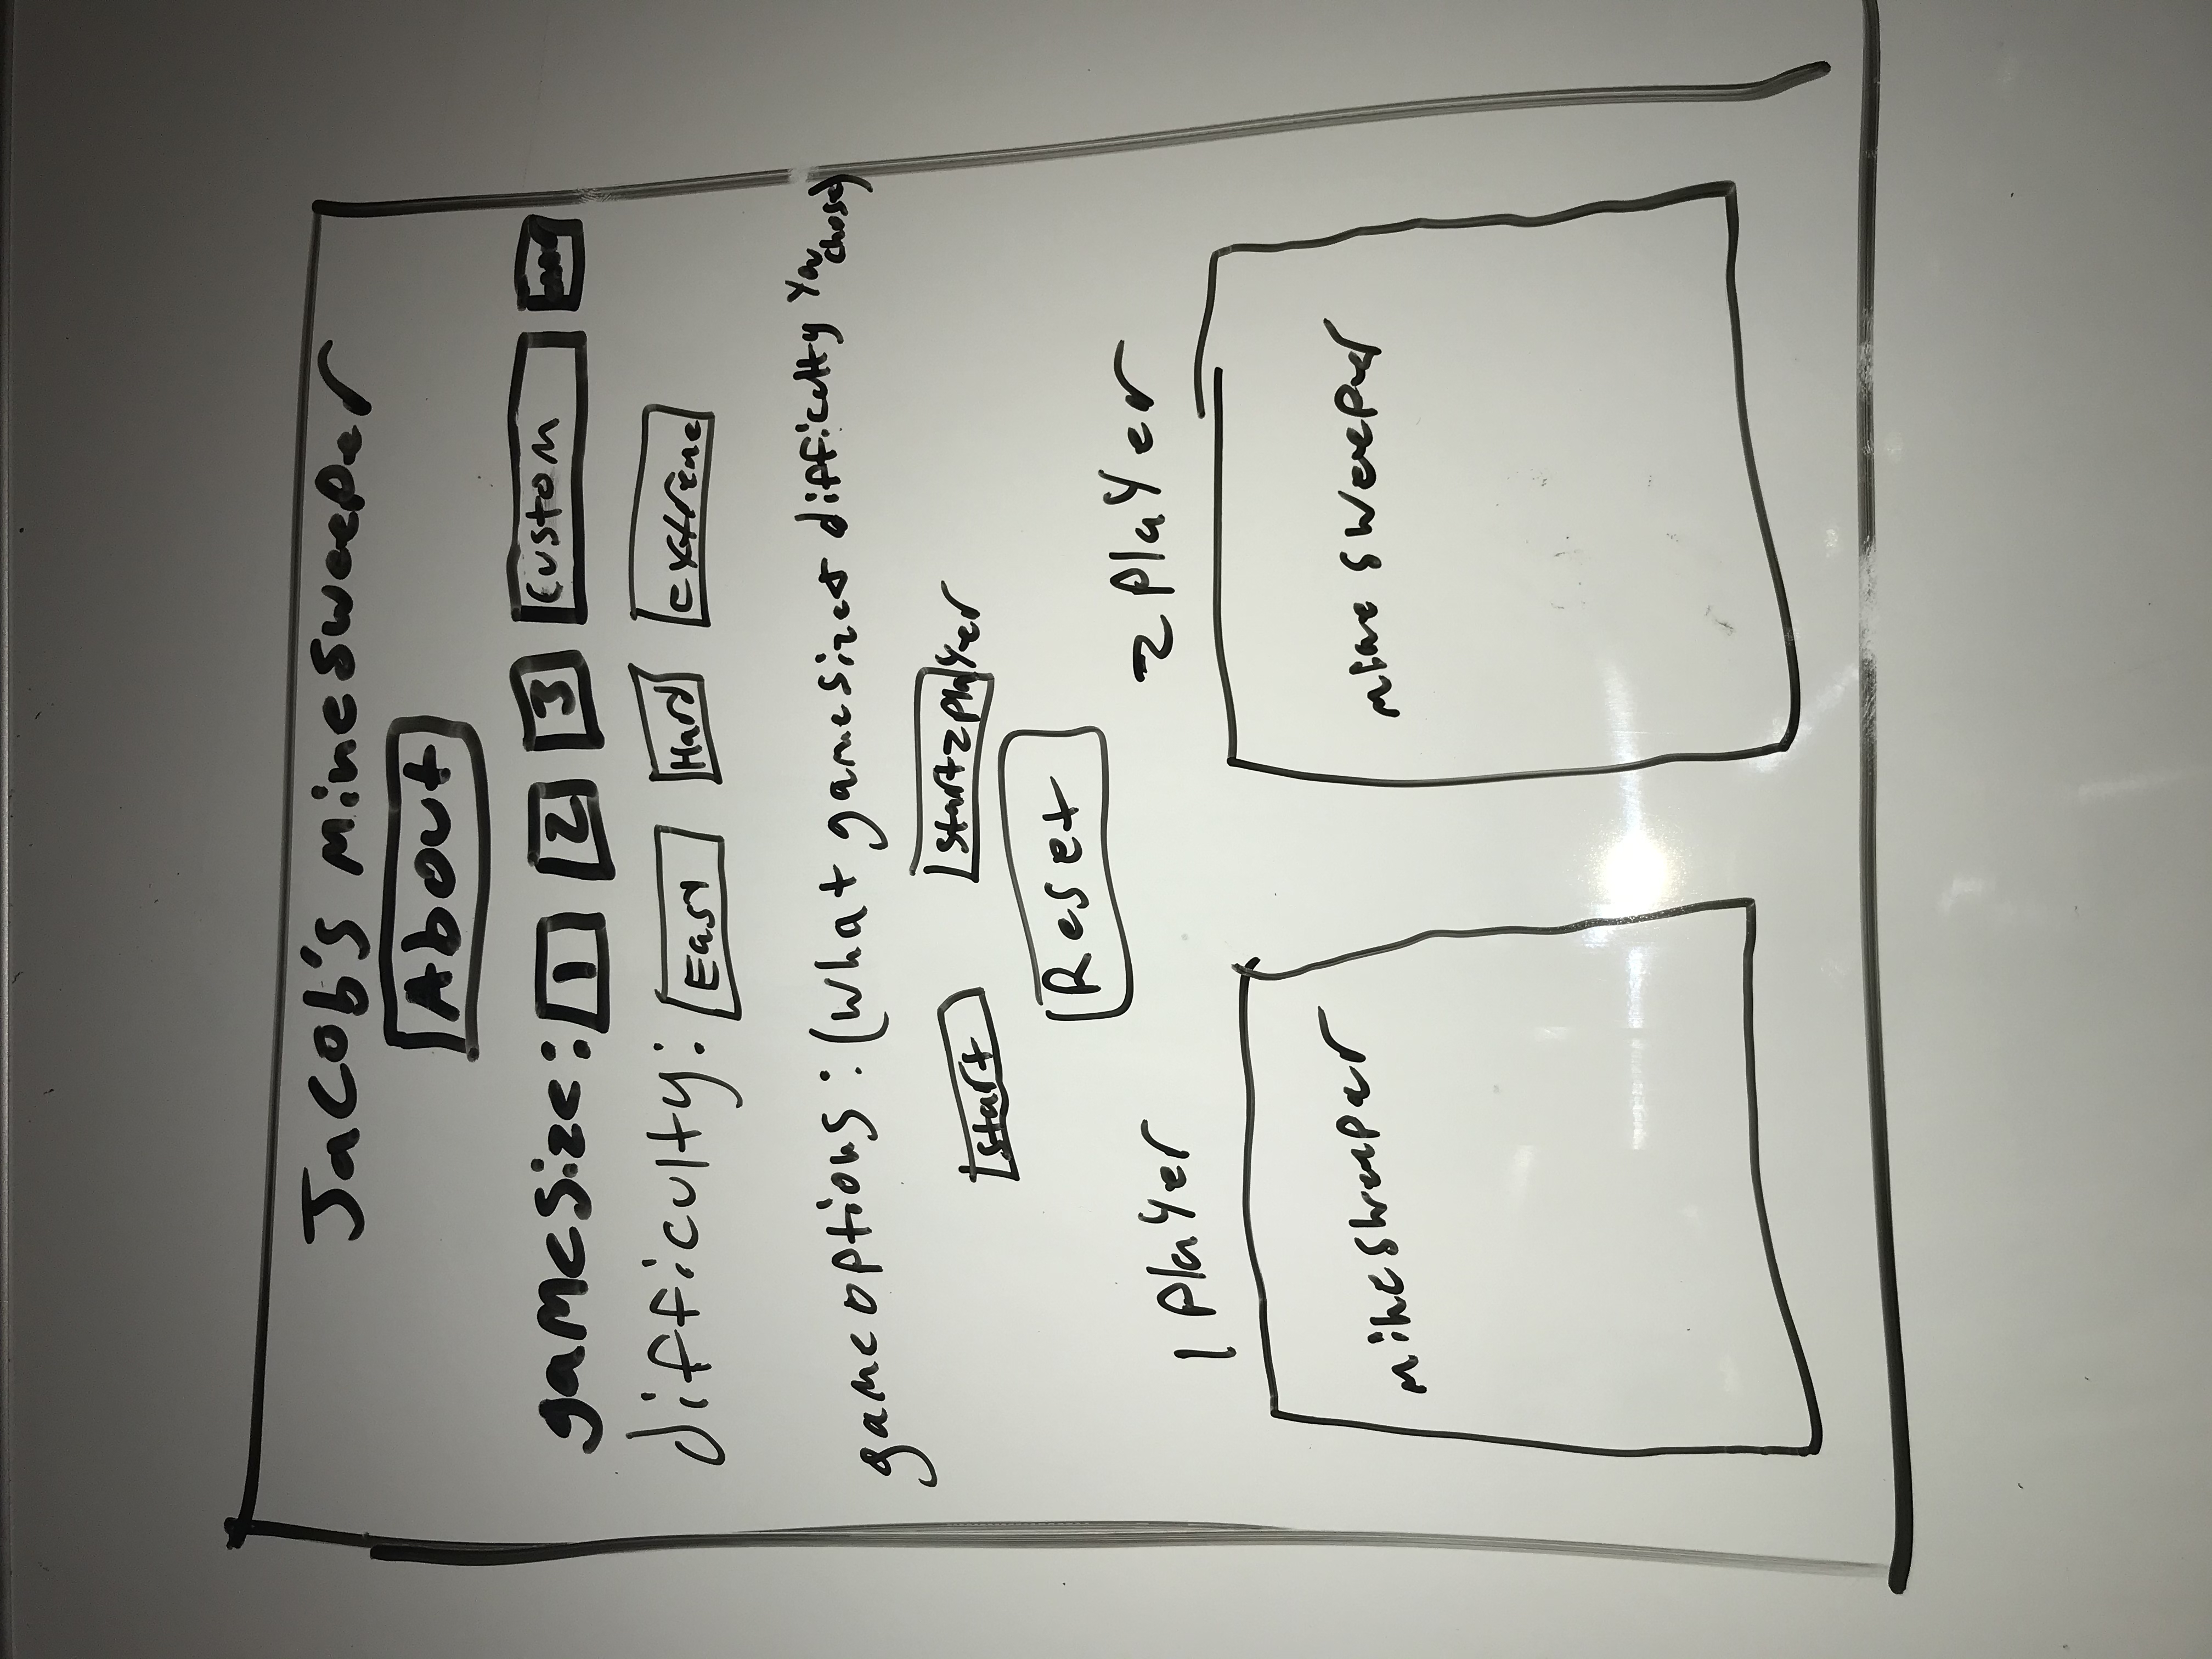 Jacob's minesweeper
About
gamesize: 1 2 3 Custom
difficulty: Easy Hard extreme
gameoptions: (What gamesize & difficulty you chose)
start start2player
Reset
1 Player 2 Player
minesweeper minesweeper